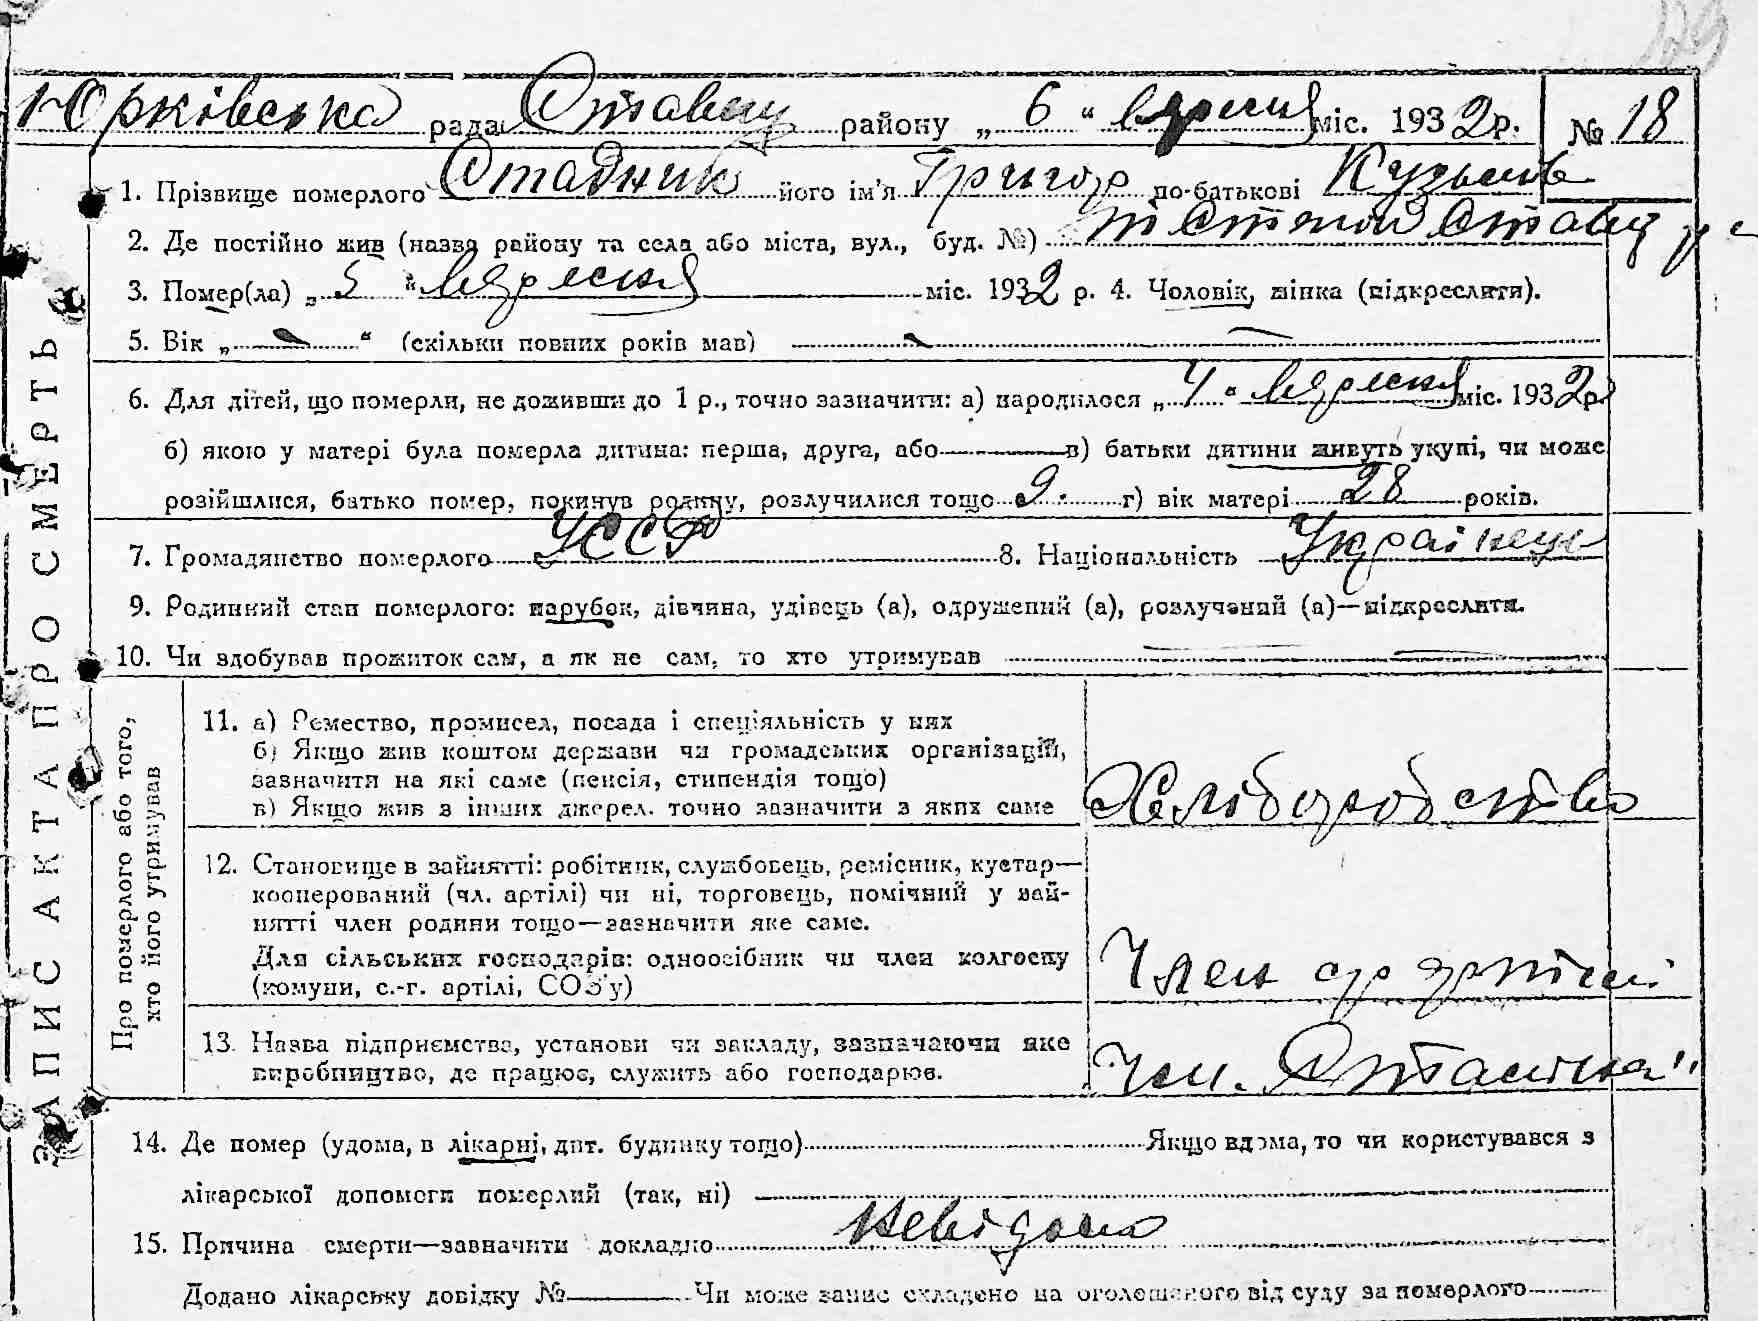 Юрківська рада Ставищ району „ 6 “ вересня міс. 1932 р. № 18
1. Прізвище померлого Стадник його ім'я Григор по-батькові Кузьмів
2. Де постійно жив (назва району та села або міста, вул., буд. №) Ставищ р
3. Помер(ла) „ 5 “ вересня міс. 1932 р. 4. Чоловік, жінка (підкреслити).
5. Вік „ “ (скільки повних років мав)
6. Для дітей, що померли, не доживши до 1 р., точно зазначити: а) народилося „ 4 “ вересня міс. 1932 р.
б) якою у матері була померла дитина: перша, друга, або в) батьки дитини живуть укупі, чи може
розійшлися, батько помер, покинув родину, розлучилися тощо г) вік матері 28 років.
7. Громадянство померлого УССР 8. Національність Українець
9. Родинний стан померлого: парубок, дівчина, удівець (а), одружений (а), розлучений (а)—підкреслити.
10. Чи здобував прожиток сам, а як не сам, то хто утримував
ЗАПИС АКТА ПРО СМЕРТЬ
Про померлого або того,
хто його утримував
11. а) Ремество, промисел, посада і спеціяльність у них
б) Якщо жив коштом держави чи громадських організацій,
зазначити на які саме (пенсія, стипендія тощо)
в) Якщо жив з інших джерел, точно зазначити з яких саме
Хліборобство
12. Становище в зайнятті: робітник, службовець, ремісник, кустар—
кооперований (чл. артілі) чи ні, торговець, помічний у зай-
нятті член родини тощо—зазначити яке саме.
Для сільських господарів: одноосібник чи член колгоспу
(комуни, с.-г. артілі, СОЗ'у)
Член артілі
13. Назва підприємства, установи чи закладу, зазначаючи яке
виробництво, де працює, служить або господарює.
14. Де помер (удома, в лікарні, дит. будинку тощо) Якщо вдома, то чи користувався з
лікарської допомоги померлий (так, ні)
15. Причина смерти—зазначити докладно невідома
Додано лікарську довідку № Чи може запис складено на оголошеного від суду за померлого